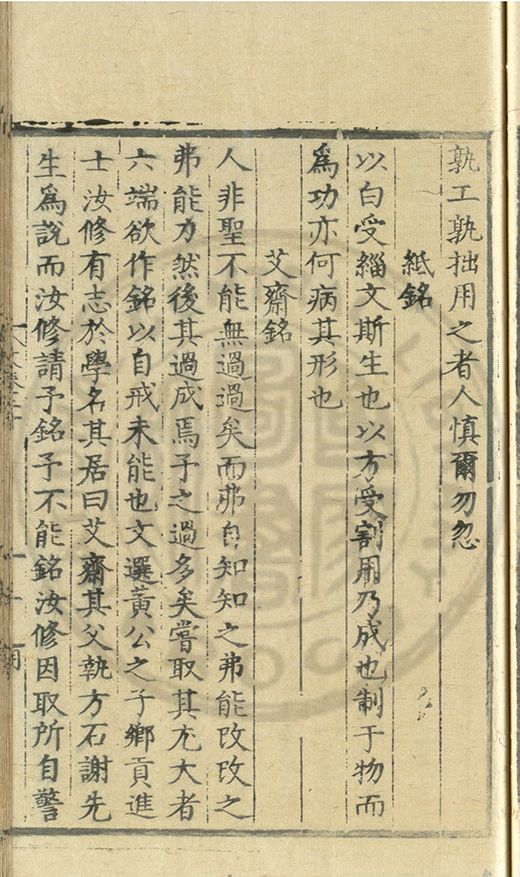 孰工孰拙用之者人慎爾勿忽
紙銘
以白受緇文斯生也以方受割用乃成也制于物而
爲功亦何病其形也
艾齋銘
人非聖不能無過過矣而弗自知知之弗能改改之
弗能力然後其過成焉予之過多矣嘗取其尤大者
六端欲作銘以自戒未能也文選黃公之子鄉貢進
士汝修有志於學名其居曰艾齋其父執方石謝先
生爲說而汝修請予銘予不能銘汝修因取所自警